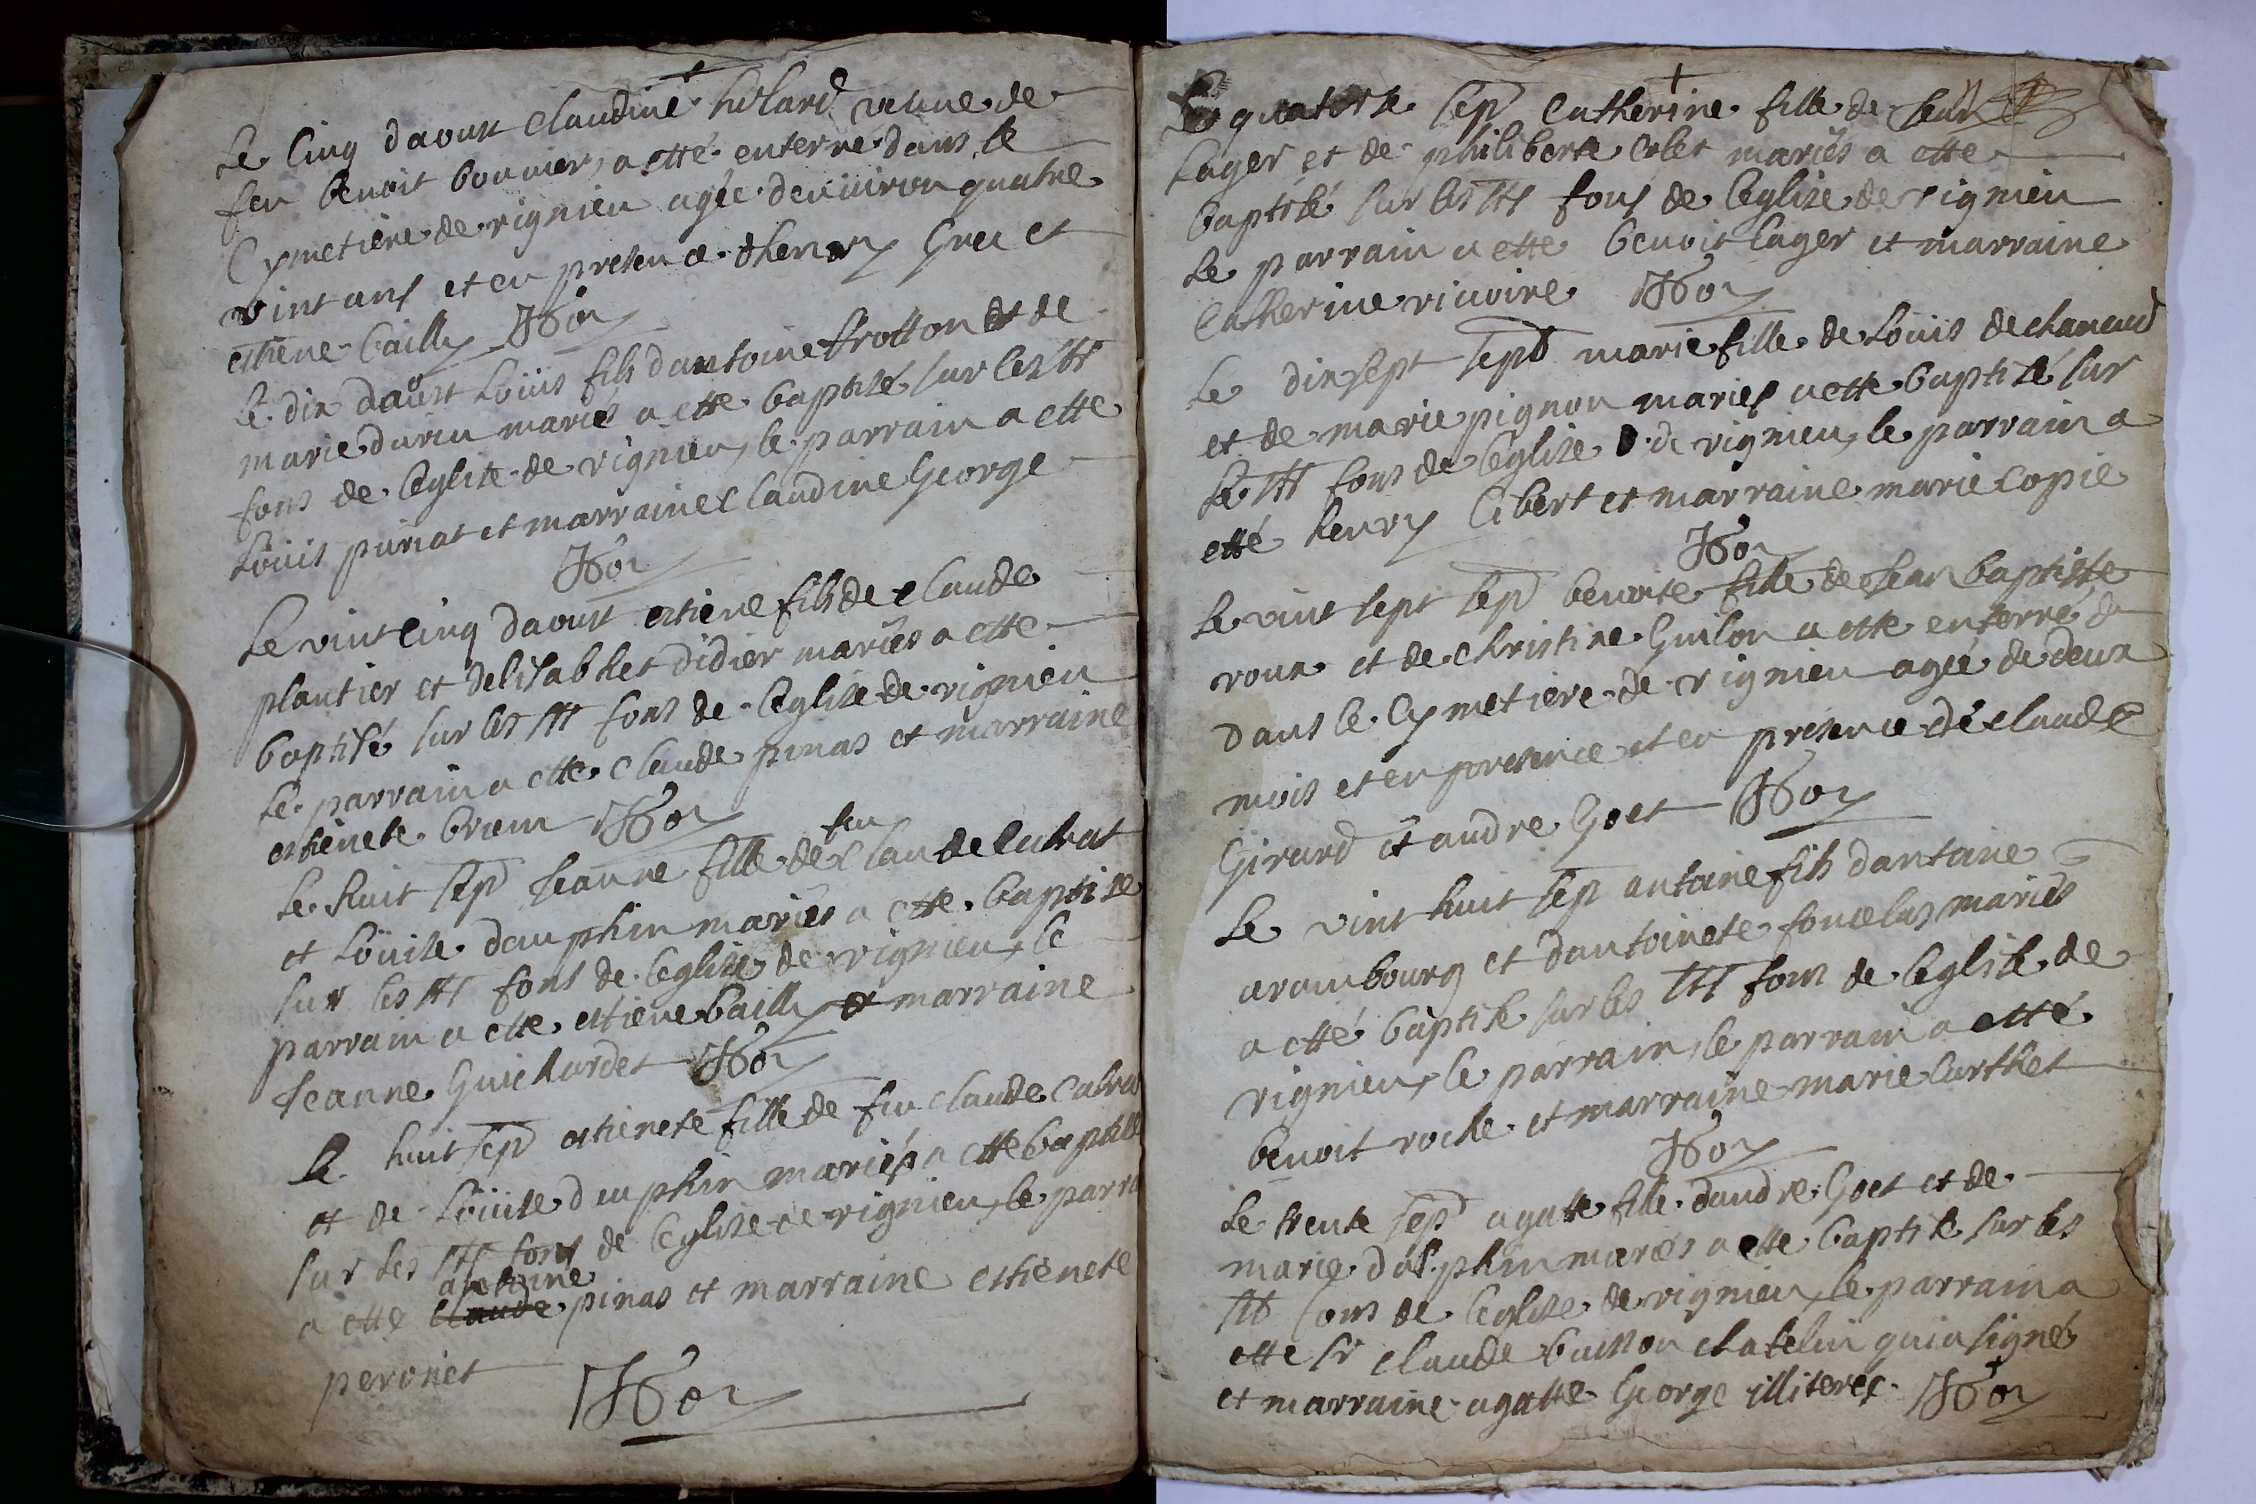 Le cinq daoust claudine hilard veuve de
feu benoit bouvier, a etté enterré dans le
Cymetiere de vignieu agée denviron quatre
vint ans et en presence dhenry Greu et
estiene bailly
Le dix daoust Loüis fils dantoine frotton et de
marie durieu mariés a etté baptisé sur les sts
fons de leglise de vignieu, le parrain a etté
Loüis puriat et marraine claudine George
Le vint cinq daoust estiene fils de claude
plantier et delisabhet didier mariés a etté
baptisé sur les sts fons de leglise de vignieu
Le parrain a etté claude pinas et marraine
estienete
Le huit sep Jeanne fille de feu claude
et Loüise dauphin mariés a etté baptisé
sur les sts fons de leglise de vignieu, le
parrain a etté estiene bailly et marraine
Jeanne Guichardet
Le huit sep estienete fille de feu claude
et de Loüise dauphin mariés a etté baptisé
sur les sts fons de leglise de vignieu, le parra
antoine
a etté claude pinas et marraine estienete
peronet
Le quatorse sep Catherine fille de
Lager et de philiberte mariés a etté
baptisé sur les sts fons de leglise de vignieu
Le parrain a etté benoit Lager et marraine
Catherine rivoire
Le dix sept sep marie fille de Loüis de chanaud
et de marie pignon mariés a etté baptisé sur
Les sts fons de leglise de vignieu, le parrain a
etté henry Gibert et marraine marie Copie
Le vint sept sep benoite fille de Jean baptiste
roux et de christine Guilon a etté enterré
dans le Cymetiere de vignieu agée de deux
mois et en presence et en presence de claude
Girard et andre Goet
Le vint huit sep antoine fils dantoine
arambourg et dantoinete mariés
a etté baptisé sur les sts fons de leglise de
vignieu, le parrain, le parrain a etté
benoit roche et marraine marie curthet
Le trente sep agatte fille dandre Goet et de
marie dalphin mariés a etté baptisé sur les
sts fons de leglise de vignieu, le parrain a
etté sr claude buisson chatelin qui a signé
et marraine agatte George illiterés